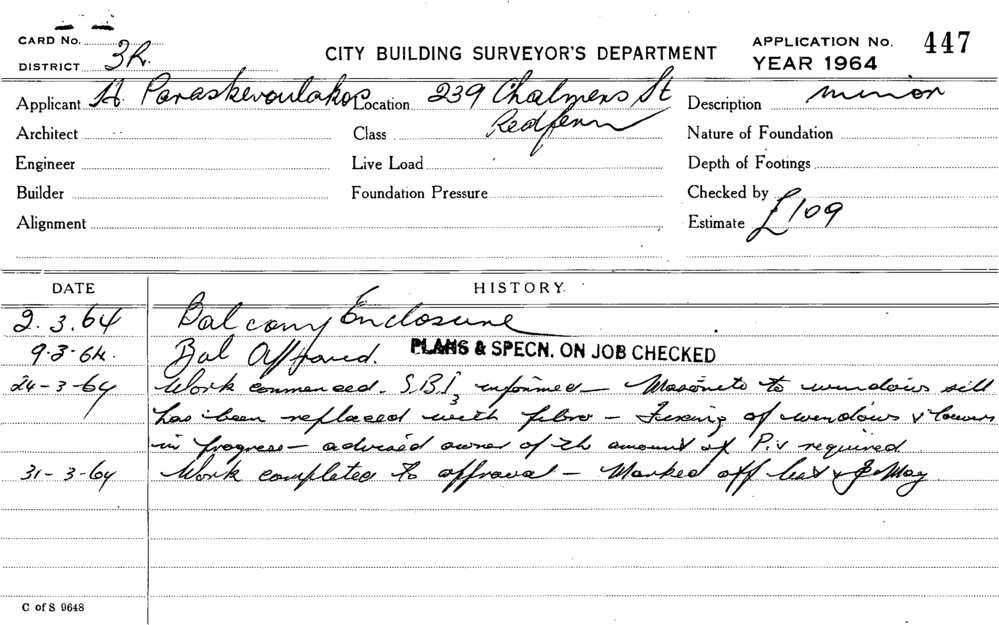 CARD No.
DISTRICT 3R.
CITY BUILDING SURVEYOR'S DEPARTMENT
APPLICATION No. 447
YEAR 1964
Applicant H. Paraskevoulakos Location 239 Chalmers St Description minor
Redfern
Architect Class Nature of Foundation
Engineer Live Load Depth of Footings
Builder Foundation Pressure Checked by
Alignment Estimate £109
DATE HISTORY
2.3.64 Balcony Enclosure
9.3.64. Bal Approved. PLANS & SPECN. ON JOB CHECKED
24-3-64 Work commenced - S.B.I. informed - Masonite to window sill
has been replaced with fibro - Fixing of windows & louvres
in progress - advised owner of the amount of P.V required
31-3-64 Work completed to approval - Marked off list &
C of S 9648